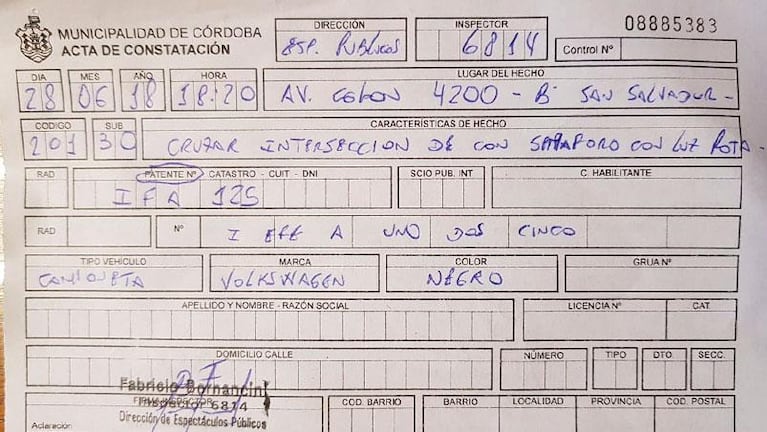 MUNICIPALIDAD DE CÓRDOBA
ACTA DE CONSTATACIÓN
DIRECCIÓN
ESP. PUBLICOS
INSPECTOR
6814
08885383
Control Nº
DIA MES AÑO HORA
28 06 18 18:20
LUGAR DEL HECHO
AV. COLON 4200 - Bº SAN SALVADOR -
CODIGO SUB
201 30
CARACTERÍSTICAS DE HECHO
CRUZAR INTERSECCION DE CON SEMAFORO CON LUZ ROJA -
RAD PATENTE Nº CATASTRO - CUIT - DNI SCIO PUB. INT C. HABILITANTE
IFA 125
RAD Nº I EFE A UNO DOS CINCO
TIPO VEHÍCULO MARCA COLOR GRUA Nº
CAMIONETA VOLKSWAGEN NEGRO
APELLIDO Y NOMBRE - RAZÓN SOCIAL LICENCIA Nº CAT.
DOMICILIO CALLE NÚMERO TIPO DTO. SECC.
Fabricio Bornancini
Inspector 6814
Dirección de Espectáculos Públicos
Aclaración
COD. BARRIO BARRIO LOCALIDAD PROVINCIA COD. POSTAL